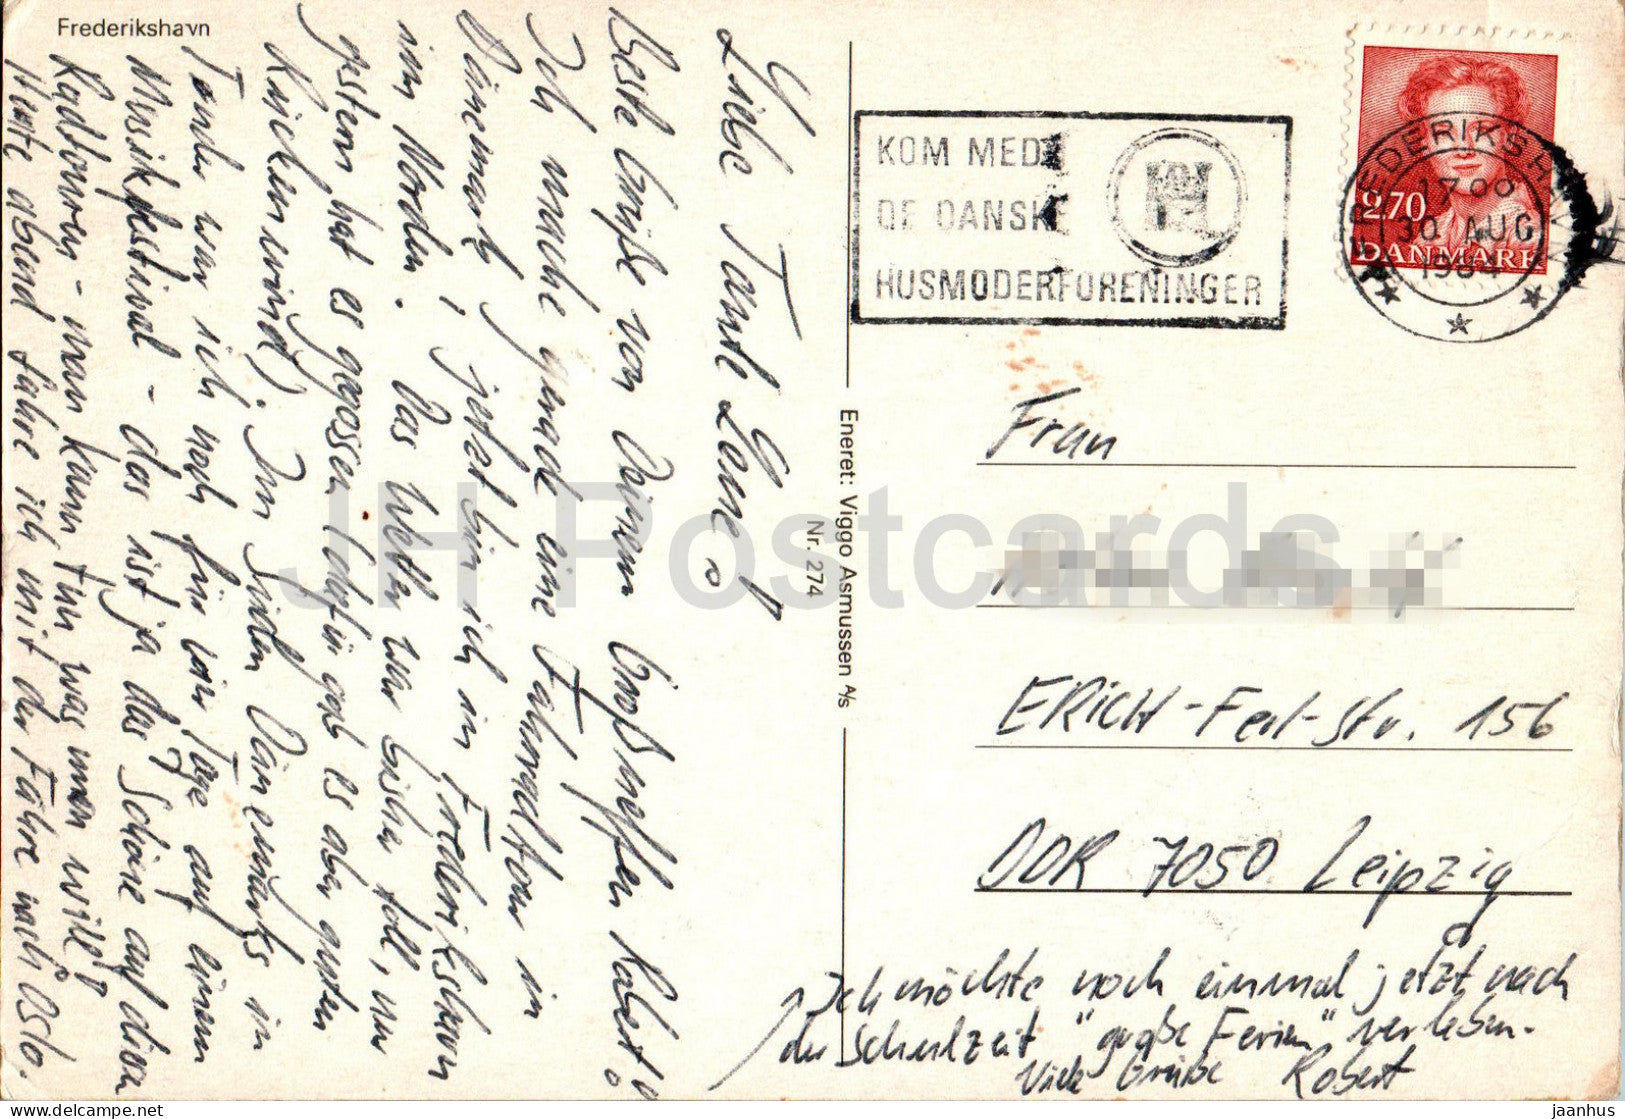 Frederikshavn
Liebe Tante Lene!
Beste Grüße von Deinem Großneffen Robert!
Ich mache gerade eine Fahrradtour in
Dänemark, jetzt bin ich in Frederikshavn
im Norden. Das Wetter war bisher toll, nur
gestern hat es gegossen (dafür gab es aber guten
Rückenwind). Im Süden Dänemarks in
Tønder war ich noch für vier Tage auf einem
Musikfestival - das ist ja das Schöne auf diesen
Radtouren - man kann tun was man will!
Heute abend fahre ich mit der Fähre nach Oslo.
Eneret: Viggo Asmussen A/s
Nr. 274
KOM MED I
DE DANSKE
HUSMODERFORENINGER
FREDERIKSHAVN
1700
30 AUG
2.70
DANMARK
Frau
ERICH-Ferl-Str. 156
DDR 7050 Leipzig
Ich möchte noch einmal jetzt nach
der Schulzeit "große Ferien" verleben.
Viele Grüße Robert
JH Postcards
jaanhus © delcampe.net